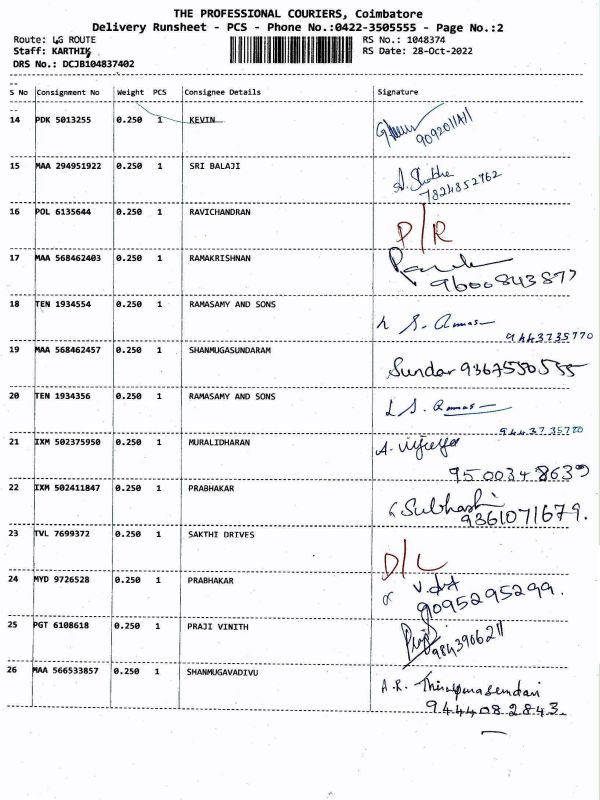 THE PROFESSIONAL COURIERS, Coimbatore
Delivery Runsheet - PCS - Phone No.:0422-3505555 - Page No.:2
Route: LG ROUTE RS No.: 1048374
Staff: KARTHIK RS Date: 28-Oct-2022
DRS No.: DCJB104837402
S No Consignment No Weight PCS Consignee Details Signature
14 PDK 5013255 0.250 1 KEVIN
15 MAA 294951922 0.250 1 SRI BALAJI
7824852762
16 POL 6135644 0.250 1 RAVICHANDRAN D/R
17 MAA 568462403 0.250 1 RAMAKRISHNAN
9600843877
18 TEN 1934554 0.250 1 RAMASAMY AND SONS
9443735770
19 MAA 568462457 0.250 1 SHANMUGASUNDARAM
Sundar 9367550555
20 TEN 1934356 0.250 1 RAMASAMY AND SONS
9443735770
21 IXM 502375950 0.250 1 MURALIDHARAN
9500348639
22 IXM 502411847 0.250 1 PRABHAKAR
9361071679.
23 TVL 7699372 0.250 1 SAKTHI DRIVES
D/L
24 MYD 9726528 0.250 1 PRABHAKAR
9095295299.
25 PGT 6108618 0.250 1 PRAJI VINITH
Praji
9843906211
26 MAA 566533857 0.250 1 SHANMUGAVADIVU
A.R.
9444082843.